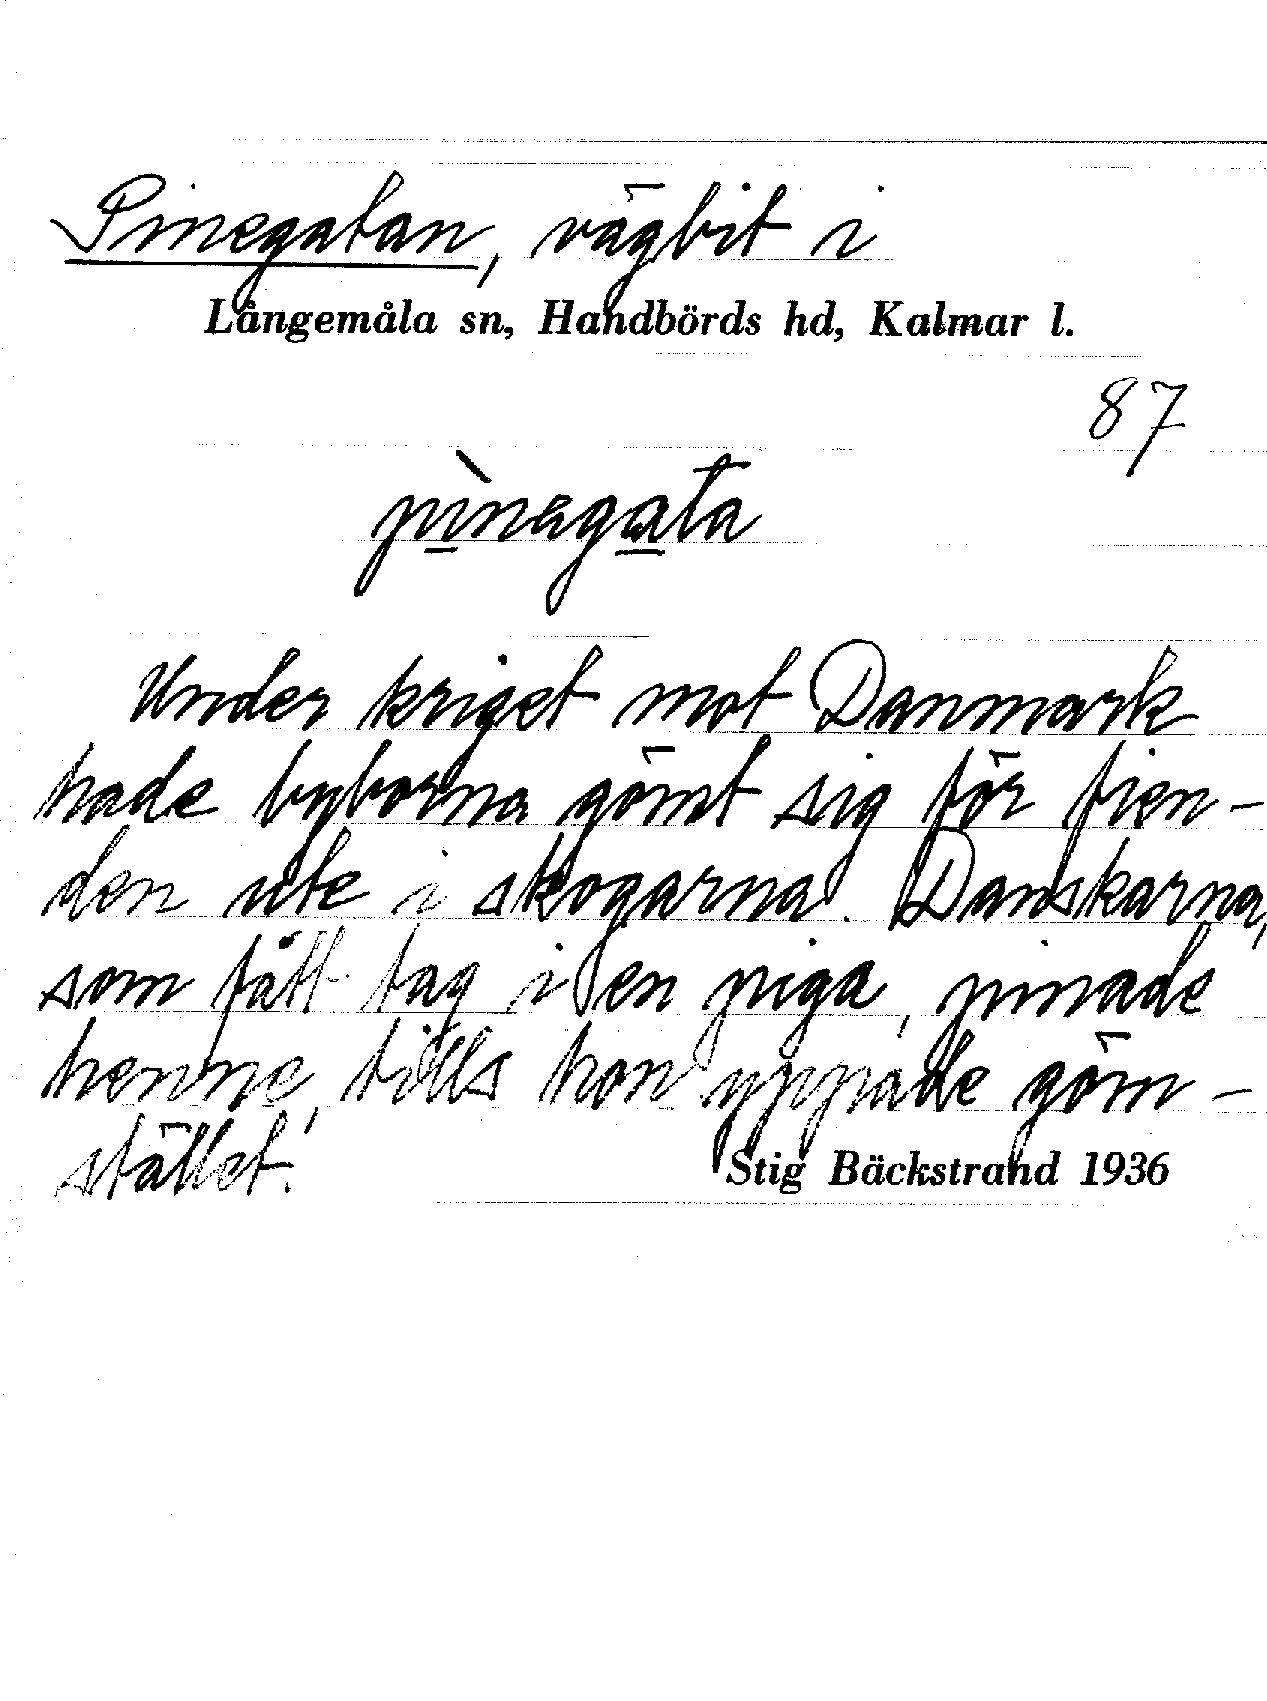 Pinegatan, vägbit i
Långemåla sn, Handbörds hd, Kalmar l.
87
pìnegata
Under kriget mot Danmark
hade byborna gömt sig för fien-
den ute i skogarna. Danskarna,
som fått tag i en piga, pinade
henne, tills hon yppade göm-
stället.
Stig Bäckstrand 1936